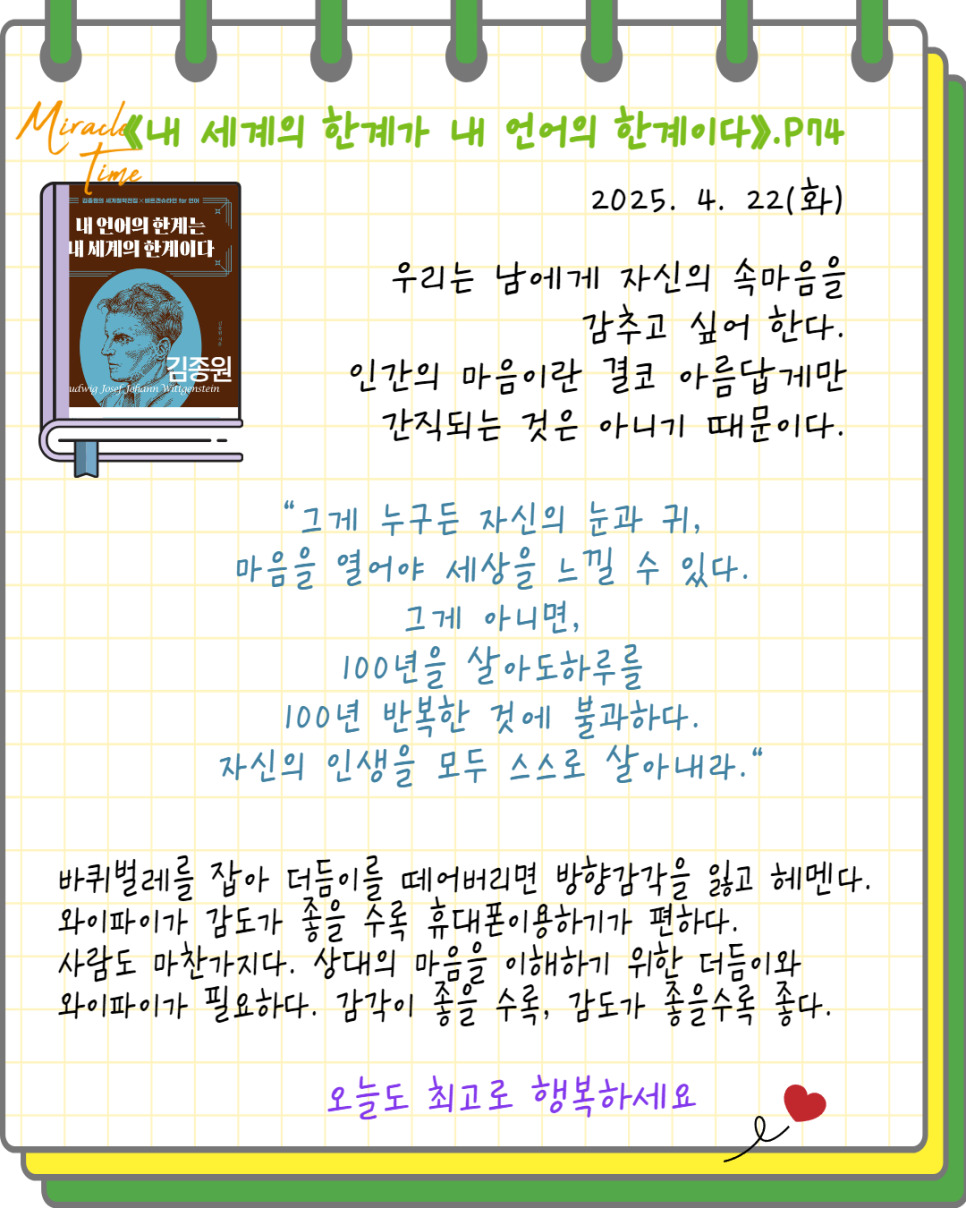 Miracle
Time
《내 세계의 한계가 내 언어의 한계이다》.P74
2025. 4. 22(화)
김종원의 세계철학전집 × 비트겐슈타인 for 언어
내 언어의 한계는
내 세계의 한계이다
김종원
udwig Josef Johann Wittgenstein
우리는 남에게 자신의 속마음을
감추고 싶어 한다.
인간의 마음이란 결코 아름답게만
간직되는 것은 아니기 때문이다.
"그게 누구든 자신의 눈과 귀,
마음을 열어야 세상을 느낄 수 있다.
그게 아니면,
100년을 살아도하루를
100년 반복한 것에 불과하다.
자신의 인생을 모두 스스로 살아내라."
바퀴벌레를 잡아 더듬이를 떼어버리면 방향감각을 잃고 헤멘다.
와이파이가 감도가 좋을 수록 휴대폰이용하기가 편하다.
사람도 마찬가지다. 상대의 마음을 이해하기 위한 더듬이와
와이파이가 필요하다. 감각이 좋을 수록, 감도가 좋을수록 좋다.
오늘도 최고로 행복하세요